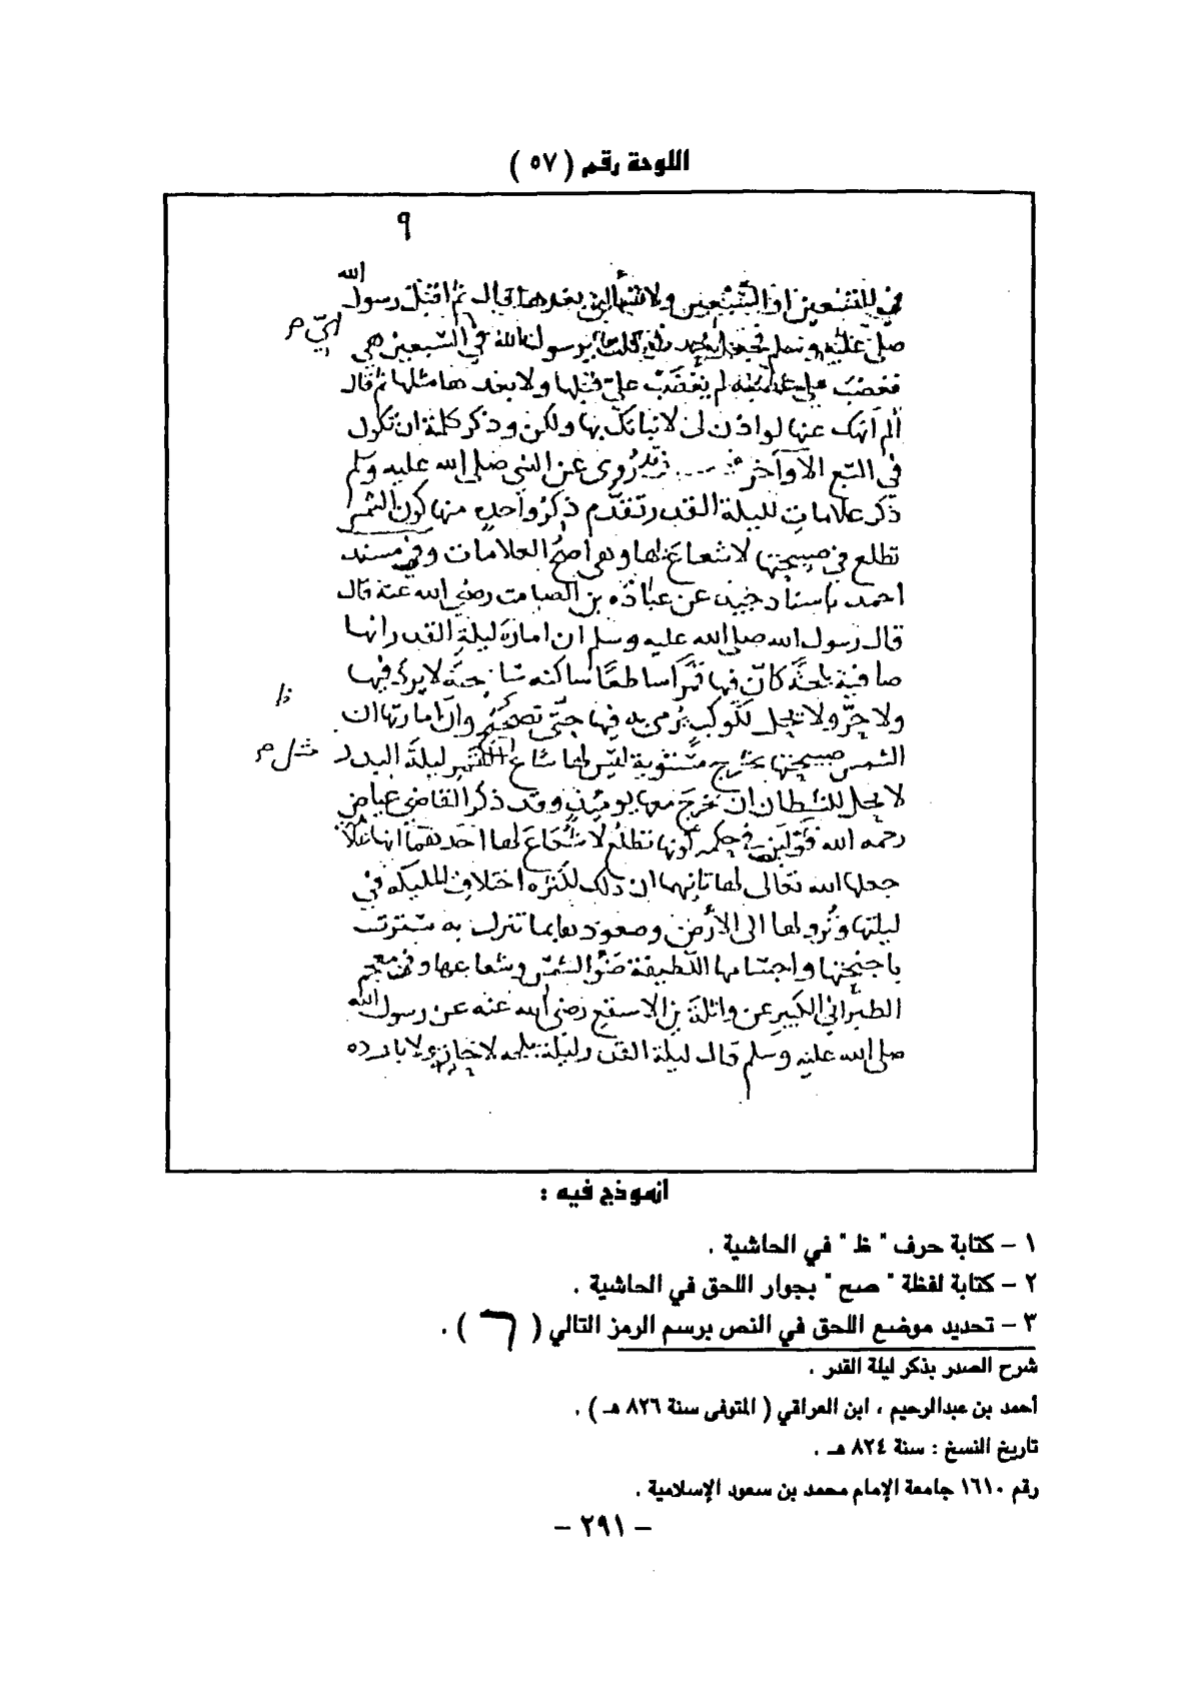 اللوحة رقم ( ٥٧ )
٩
الله
في السبعين او التسعين ولا تسألني بعدها قال ثم اقبل رسول
صلى عليه وسلم يا رسول الله في السبعين هي
فغضب علي لم يغضب علي قبلها ولا بعدها مثلها ثم قال
ألم أنهك عنها لو اذن لي لانباتك بها ولكن وذكر كلمة ان تكون
في السبع الأواخر يروى عن النبي صلى الله عليه وسلم
ذكر علامات لليلة القدر تقدم ذكر واحد منها كون الشمس
تطلع في صبيحتها لا شعاع لها وهي اصح العلامات وفي مسند
احمد باسناد جيد عن عبادة بن الصامت رضي الله عنه قال
قال رسول الله صلى الله عليه وسلم ان امارة ليلة القدر انها
صافية بلجة كان فيها قمرا ساطعا ساكنه ساجية لا برد فيها
ظ
ولا حر ولا يحل لكوكب يرمى به فيها حتى تصبح وان امارتها ان
الشمس صبيحتها تخرج مستوية ليس لها شعاع القمر ليلة البدر
مثل
لا يحل للشيطان ان يخرج معها يومئذ وقد ذكر القاضي عياض
رحمه الله قولين في حكمه كونها تطلع لا شعاع لها احدهما انها علامة
جعلها الله تعالى لها ثانيهما ان ذلك لكثرة اختلاف المليكه في
ليلتها ونزولها الى الأرض وصعودها بما تنزل به سترت
باجنحتها واجسامها اللطيفة ضوء الشمس وشعاعها وفي معجم
الطبراني الكبير عن واثلة بن الاسقع رضي الله عنه عن رسول الله
صلى الله عليه وسلم قال ليلة القدر ليلة بلجه لا حارة ولا بارده
أنموذج فيه :
١ - كتابة حرف " ظ " في الحاشية .
٢ - كتابة لفظة " صح " بجوار اللحق في الحاشية .
٣ - تحديد موضع اللحق في النص برسم الرمز التالي ( ) .
شرح الصدر بذكر ليلة القدر .
أحمد بن عبدالرحيم ، ابن العراقي ( المتوفى سنة ٨٢٦ هـ ) .
تاريخ النسخ : سنة ٨٢٤ هـ .
رقم ١٦١٠ جامعة الإمام محمد بن سعود الإسلامية .
- ٢٩١ -